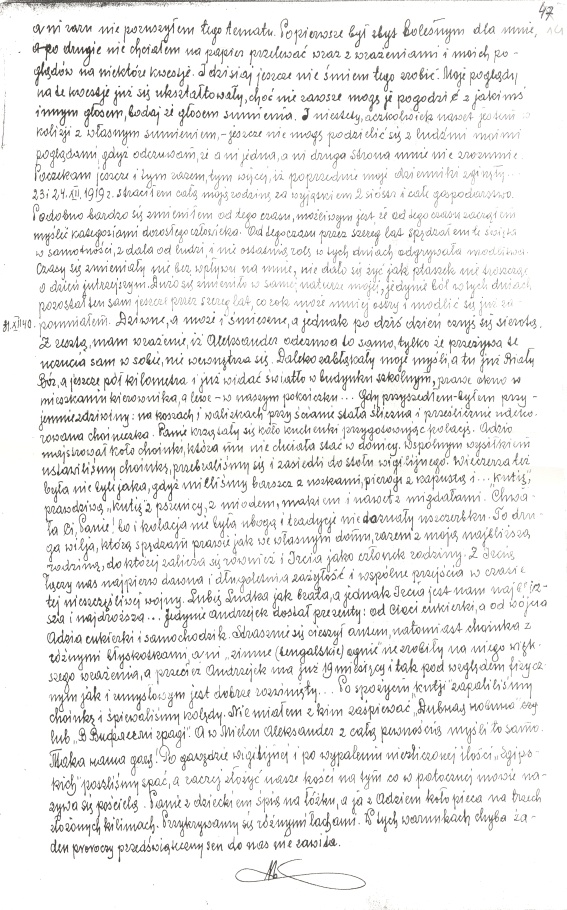 47
ani razu nie poruszyłem tego tematu. Popierwsze był zbyt bolesnym dla mnie,
a po drugie nie chciałem na papier przelewać wraz z wrażeniami i moich po-
glądów na niektóre kwestje. I dzisiaj jeszcze nie śmiem tego zrobić. Moje poglądy
na te kwestje już się ukształtowały, choć nie zawsze mogę je pogodzić z jakimś
innym głosem, bodaj że głosem sumienia. I niestety, aczkolwiek nawet jestem w
kolizji z własnym sumieniem, – jeszcze nie mogę podzielić się z ludźmi moimi
poglądami, gdyż odczuwam, że ani jedna, ani druga strona mnie nie zrozumie.
Poczekam jeszcze i tym razem, tym więcej, iż poprzednie moje dzienniki zginęły...
23 i 24.XII.1919 r. straciłem całą moją rodzinę za wyjątkiem 2 sióstr i całe gospodarstwo.
Podobno bardzo się zmieniłem od tego czasu, możliwym jest że od tego czasu zacząłem
myśleć kategorjami dorosłego człowieka. Od tego czasu przez szereg lat spędzałem te święta
w samotności, z dala od ludzi i nie ostatnią rolę w tych dniach odgrywała modlitwa.
Czasy się zmieniały nie bez wpływu na mnie, nie dało się żyć jak ptaszek nie troszcząc
o dzień jutrzejszy. Dużo się zmieniło w samej naturze mojej, jedynie ból w tych dniach
pozostał ten sam jeszcze przez szereg lat, co rok może mniej ostry i modlić się już za-
31.XII 40. pomniałem. Dziwne, a może i śmieszne, a jednak po dziś dzień czuję się sierotą.
Z resztą, mam wrażenie, iż Aleksander odczuwa to samo, tylko że przeżywa te
uczucia sam w sobie, nie wewnętrza się. Daleko zabłąkały moje myśli, a tu już Biały
Bór, a jeszcze pół kilometra i już widać światło w budynku szkolnym, prawe okno w
mieszkaniu kierownika, a lewe – w naszym pokoiczku... Gdy przyszedłem – byłem przy-
jemnie zdziwiony: na koszach i walizkach przy ścianie stała śliczna i prześlicznie udeko-
rowana choineczka. Panie krzątały się koło kuchenki przygotowując kolację. Adzio
majstrował koło choinki, która mu nie chciała stać w donicy. Wspólnym wysiłkiem
ustawiliśmy choinkę, przebraliśmy się i zasiedli do stołu wigilijnego. Wieczerza też
była nie byle jaka, gdyż mieliśmy barszcz z uszkami, pierogi z kapustą i... „kutię",
prawdziwą „kutię" z pszenicy, z miodem, makiem i nawet z migdałami. Chwa-
ła Ci, Panie! bo i kolacja nie była uboga i tradycje nie doznały uszczerbku. To dru-
ga wilja, którą spędzam prawie jak we własnym domu, razem z moją najbliższą
rodziną, do której zalicza się również i Ircia jako członek rodziny. Z Ircią
łączy nas najpierw dawna i długoletnia zażyłość i wspólne przejścia w czasie
tej nieszczęśliwej wojny. Lubię Ludka jak brata, a jednak Ircia jest nam
i najdroższą... Jedynie Andrzejek dostał prezenty: od Cioci cukierki, a od wujcia
Adzia cukierki i samochodzik. Strasznie się cieszył autem, natomiast choinka z
różnymi błyskotkami, ani „zimne (bengalskie) ognie" nie zrobiły na niego więk-
szego wrażenia, a przecież Andrzejek ma już 19 miesięcy i tak pod względem fizycz-
nym jak i umysłowym jest dobrze rozwinięty... Po spożyciu „kutji" zapaliliśmy
choinkę i śpiewaliśmy kolędy. Nie miałem z kim zaśpiewać
lub A w Mielen Aleksander z całą pewnością myśli to samo.
Po gawędzie wigilijnej i po wypaleniu niezliczonej ilości „egips-
kich" poszliśmy spać, a raczej złożyć nasze kości na tym co w potocznej mowie na-
zywa się pościelą. Panie z dzieckiem śpią na łóżku, a ja z Adziem koło pieca na trzech
złożonych kilimach. Przykrywamy się różnymi łachami. W tych warunkach chyba ża-
den proroczy przedświąteczny sen do nas nie zawita.